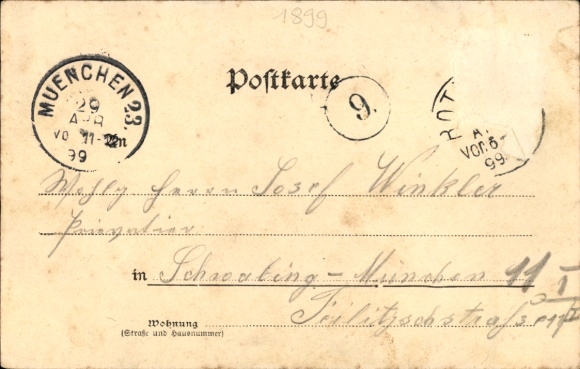 1899
MUENCHEN 23.
29
APR
VO 11-12 N
99
Postkarte
9.
ROT
A
VOR 6-
99
Wohlg Herrn Josef Winkler
Privatier
in Schwabing-München 11/I
Feilitzschstraße
Wohnung
(Straße und Hausnummer)